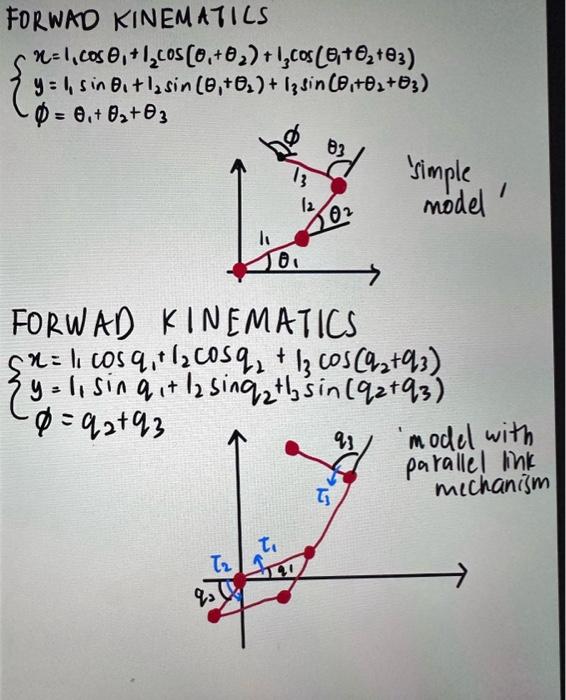 FORWAD KINEMATICS
x = l₁cosθ₁ + l₂cos(θ₁+θ₂) + l₃cos(θ₁+θ₂+θ₃)
y = l₁ sinθ₁ + l₂sin(θ₁+θ₂) + l₃sin(θ₁+θ₂+θ₃)
ϕ = θ₁+θ₂+θ₃
ϕ
θ₃
l₃
'simple
model'
l₂
θ₂
l₁
θ₁
FORWAD KINEMATICS
x = l₁ cosq₁ + l₂cosq₂ + l₃ cos(q₂+q₃)
y = l₁ sin q₁ + l₂ sinq₂ + l₃ sin(q₂+q₃)
ϕ = q₂+q₃
q₃
'model with
parallel link
mechanism
τ₃
τ₁
τ₂
q₁
q₂